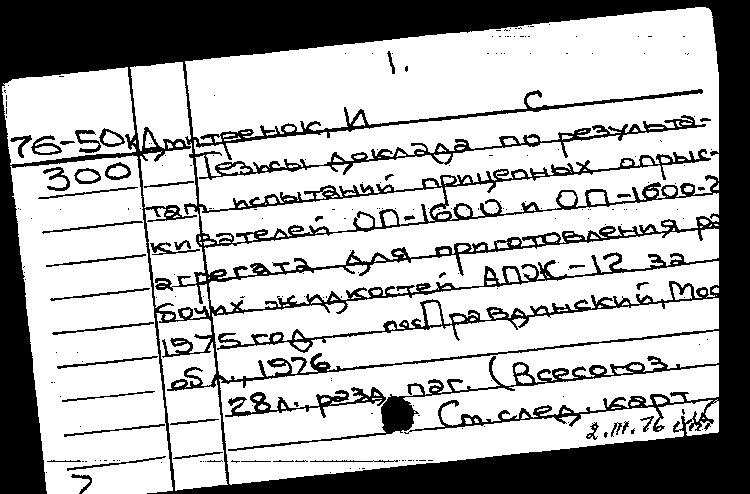 1.
76-50к Дмитренок, И С
300 Тезисы доклада по результа-
там испытаний прицепных опрыс-
кивателей ОП-1600 и ОП-1600-2
агрегата для приготовления ра
бочих жидкостей АПЖ-12 за
1975 год. пос Правдинский, Мос
обл., 1976.
28л., разд. паг. (Всесоюз.
См. след. карт.
2.III.76